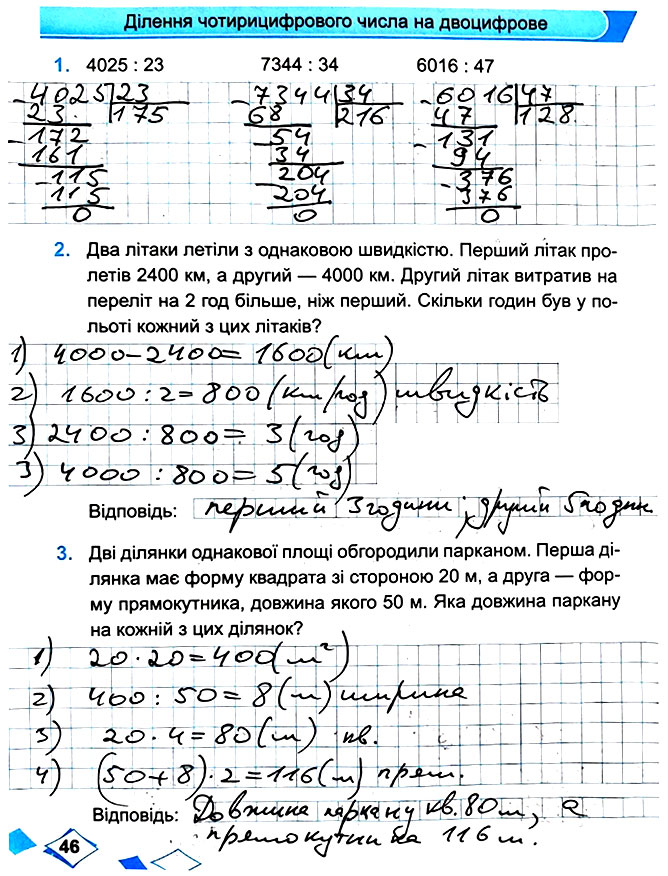 Ділення чотирицифрового числа на двоцифрове
1. 4025 : 23 7344 : 34 6016 : 47
- 4025 23 - 7344 34 - 6016 47
23 175 68 216 47 128
- 172 - 54 - 131
161 34 94
- 115 - 204 - 376
115 204 376
0 0 0
2. Два літаки летіли з однаковою швидкістю. Перший літак про-
летів 2400 км, а другий — 4000 км. Другий літак витратив на
переліт на 2 год більше, ніж перший. Скільки годин був у по-
льоті кожний з цих літаків?
1) 4000-2400=1600(км)
2) 1600:2=800(км/год) швидкість
3) 2400:800=3(год)
3) 4000:800=5(год)
Відповідь: перший 3 години; другий 5 годин
3. Дві ділянки однакової площі обгородили парканом. Перша ді-
лянка має форму квадрата зі стороною 20 м, а друга — фор-
му прямокутника, довжина якого 50 м. Яка довжина паркану
на кожній з цих ділянок?
1) 20·20=400(м²)
2) 400:50=8(м) ширина
3) 20·4=80(м) кв.
4) (50+8)·2=116(м) прям.
Відповідь: Довжина паркану кв. 80м, а
прямокутника 116 м.
46